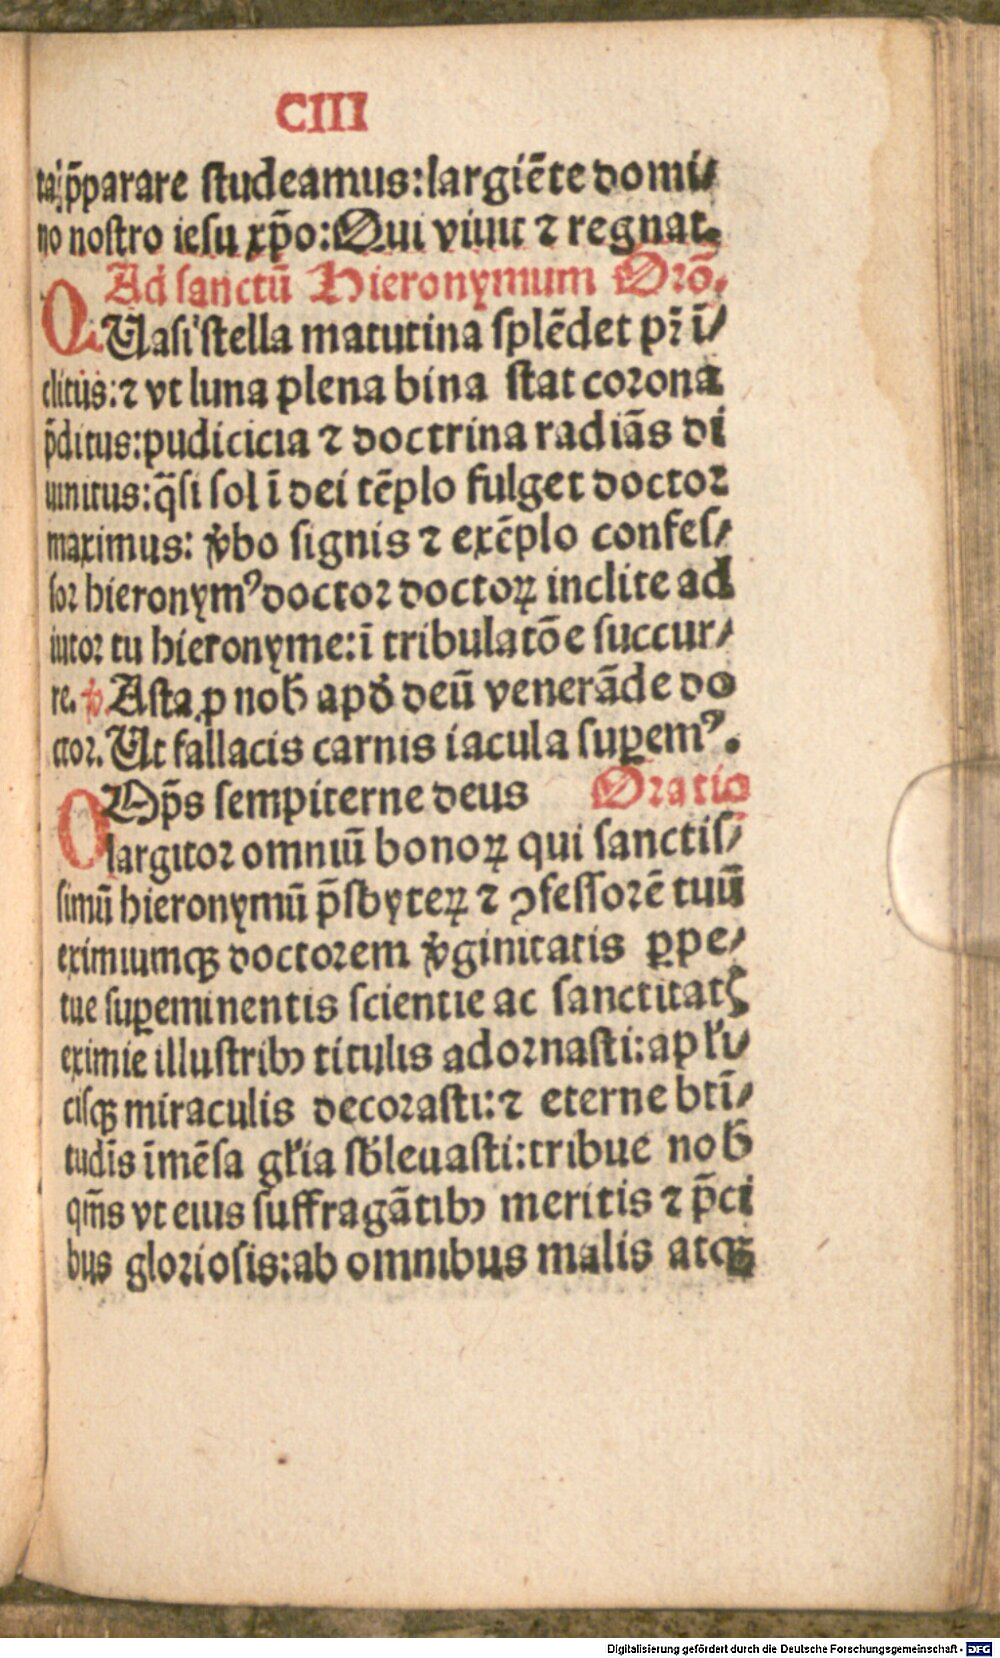 CIII
ta p̄parare studeamus: largiēte domi⸗
no nostro iesu xp̄o: Qui viuit ⁊ regnat.
Ad sanctū Hieronymum Orō.
QUasi stella matutina splēdet pr̄ ī⸗
clitus: ⁊ vt luna plena bina stat corona
p̄ditus: pudicicia ⁊ doctrina radiās di
uinitus: q̄si sol ī dei tēplo fulget doctor
maximus: v̄bo signis ⁊ exēplo confes⸗
sor hieronymꝰ doctor doctoꝝ inclite ad
iutor tu hieronyme: ī tribulatōe succur⸗
re. ℣. Asta ꝓ nob̄ apd̄ deū venerāde do
ctor. Ut fallacis carnis iacula suꝑemꝰ.
OOp̄s sempiterne deus Oratio
largitor omniū bonoꝝ qui sanctis⸗
simū hieronymū p̄sbyteꝝ ⁊ ꝯfessorē tuū
eximiumqꝫ doctorem v̄ginitatis ꝑpe⸗
tue suꝑeminentis scientie ac sanctitatꝭ
eximie illustribꝰ titulis adornasti: apl̄i⸗
cisqꝫ miraculis decorasti: ⁊ eterne btī⸗
tudīs īmēsa gl̄ia sb̄leuasti: tribue nob̄
qm̄s vt eius suffragātibꝰ meritis ⁊ p̄ci
bus gloriosis: ab omnibus malis atqꝫ
Digitalisierung gefördert durch die Deutsche Forschungsgemeinschaft - DFG